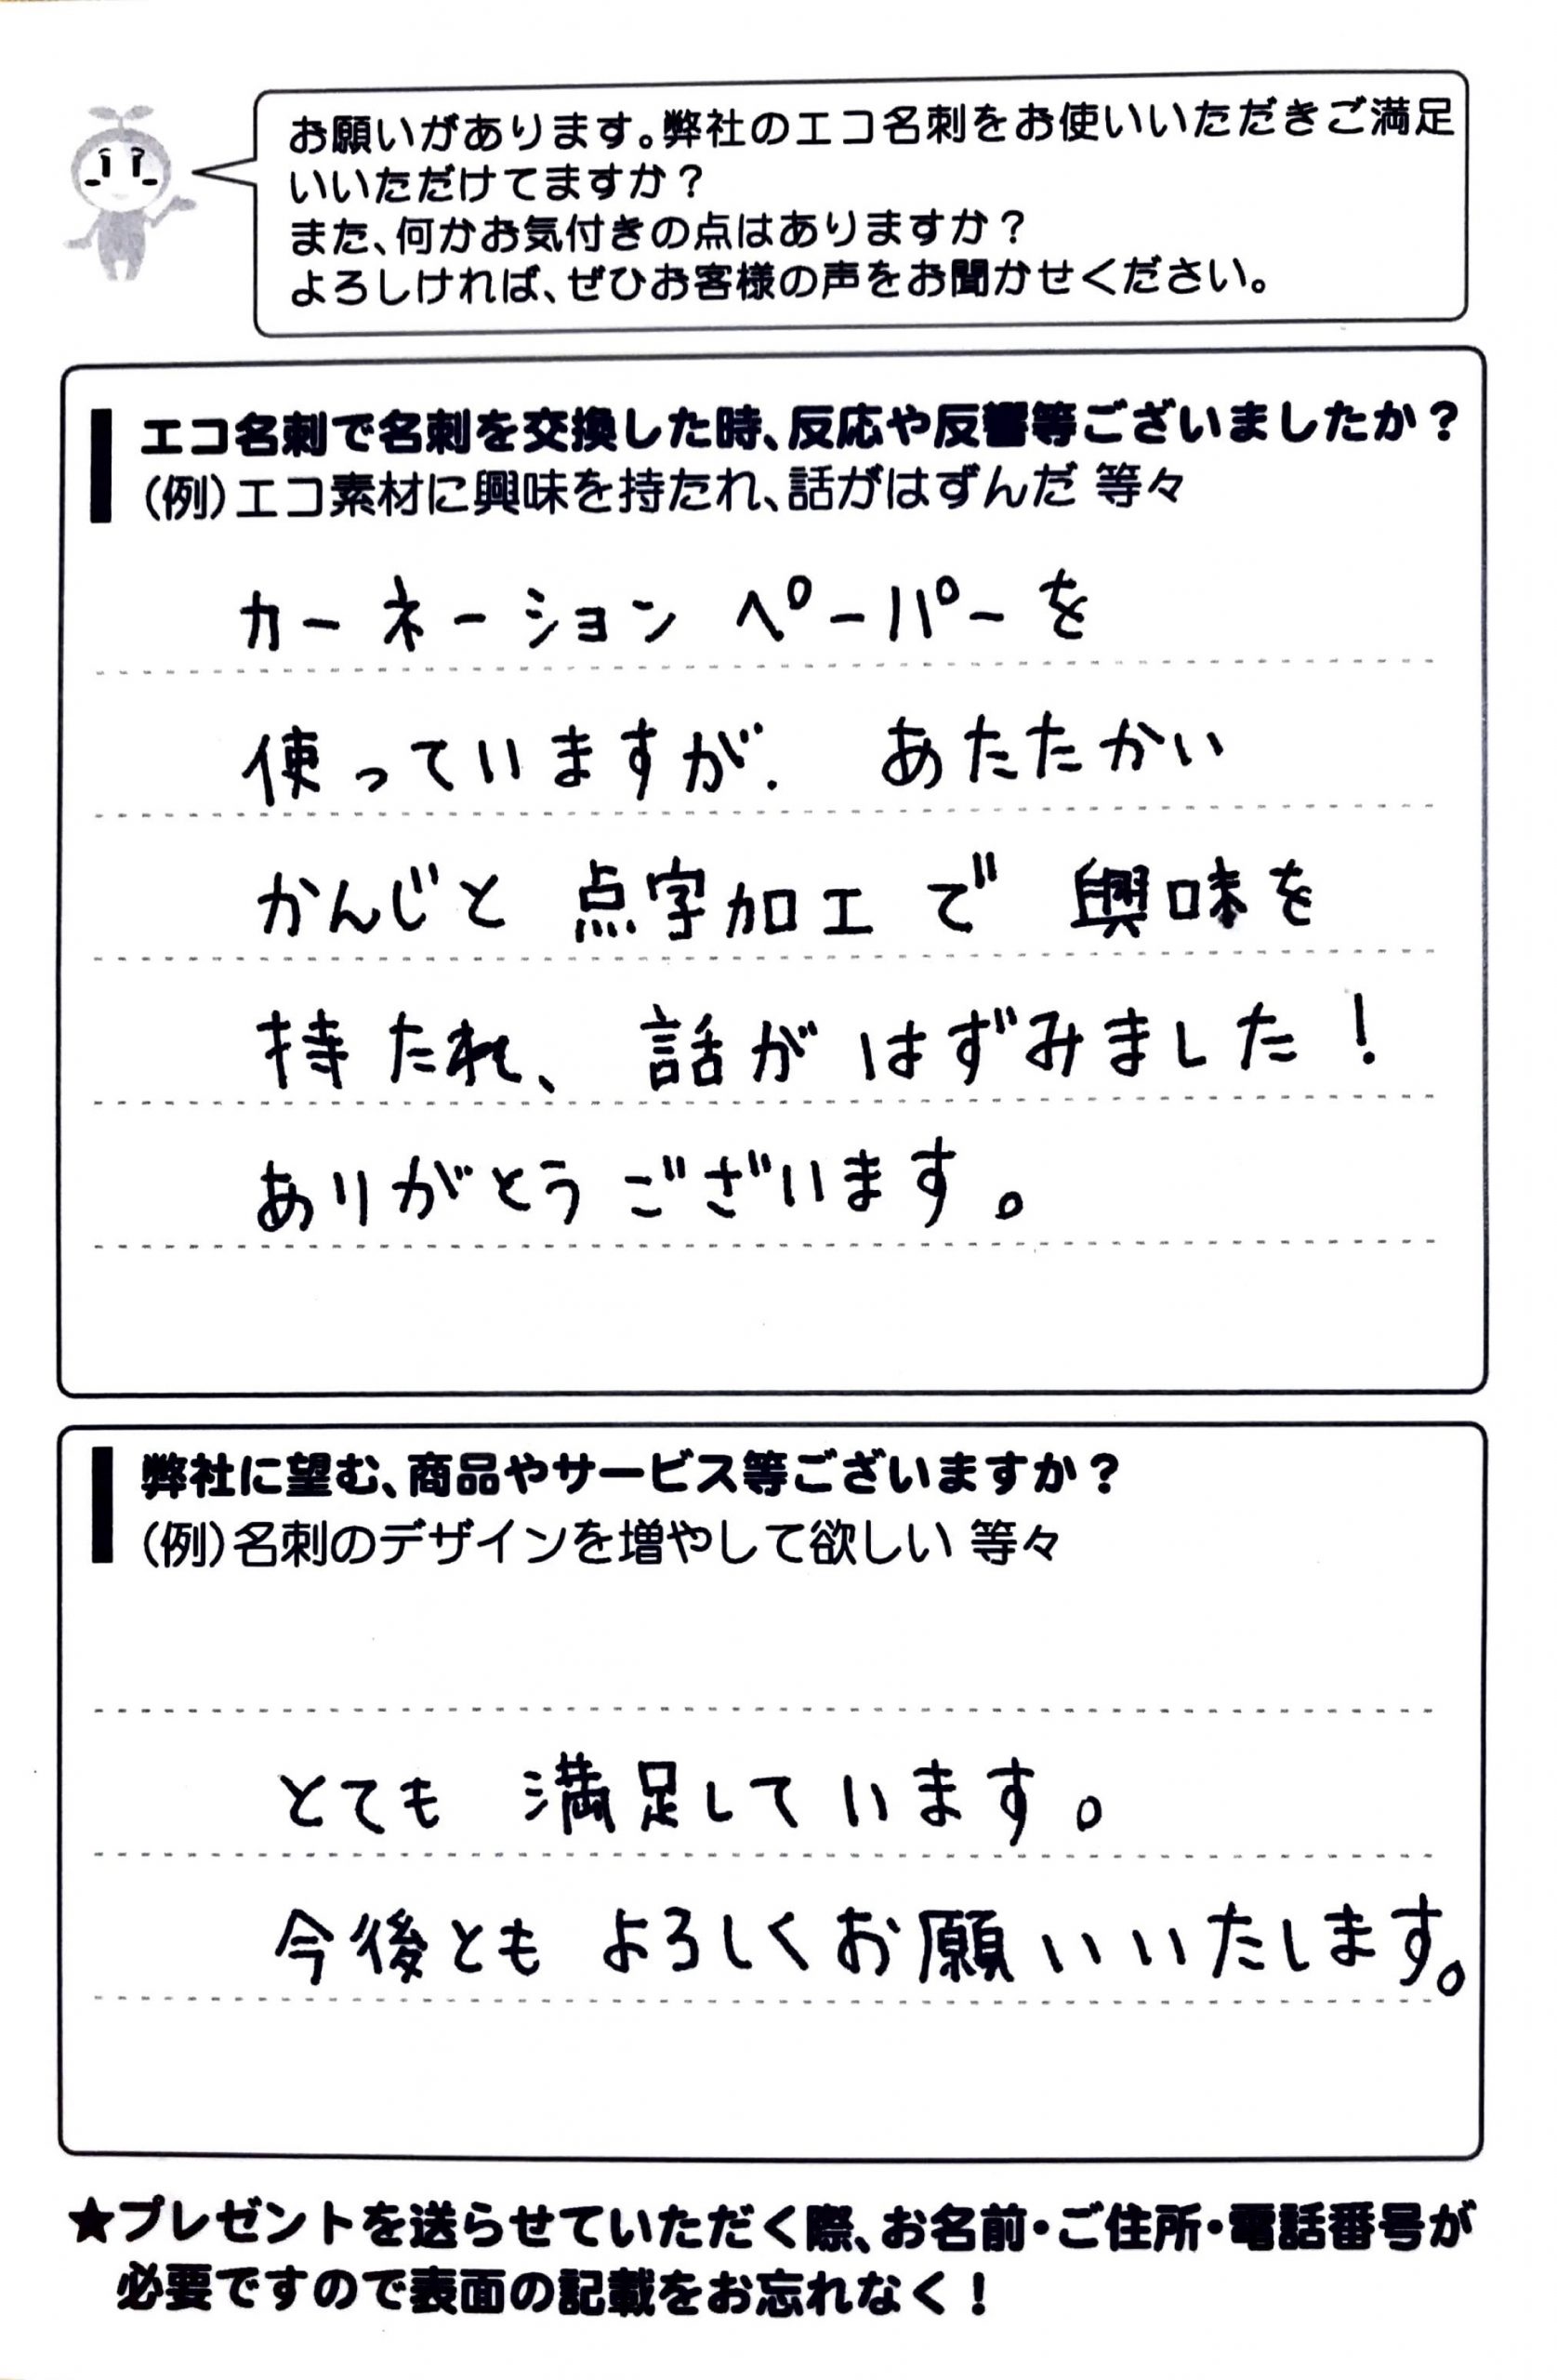 お願いがあります。弊社のエコ名刺をお使いいただきご満足
いいただけてますか？
また、何かお気付きの点はありますか？
よろしければ、ぜひお客様の声をお聞かせください。
エコ名刺で名刺を交換した時、反応や反響等ございましたか？
（例）エコ素材に興味を持たれ、話がはずんだ 等々
カーネーション ペーパーを
使っていますが. あたたかい
かんじと 点字加工で 興味を
持たれ、話がはずみました！
ありがとうございます。
弊社に望む、商品やサービス等ございますか？
（例）名刺のデザインを増やして欲しい 等々
とても 満足しています。
今後とも よろしくお願いいたします。
★プレゼントを送らせていただく際、お名前・ご住所・電話番号が
必要ですので表面の記載をお忘れなく！